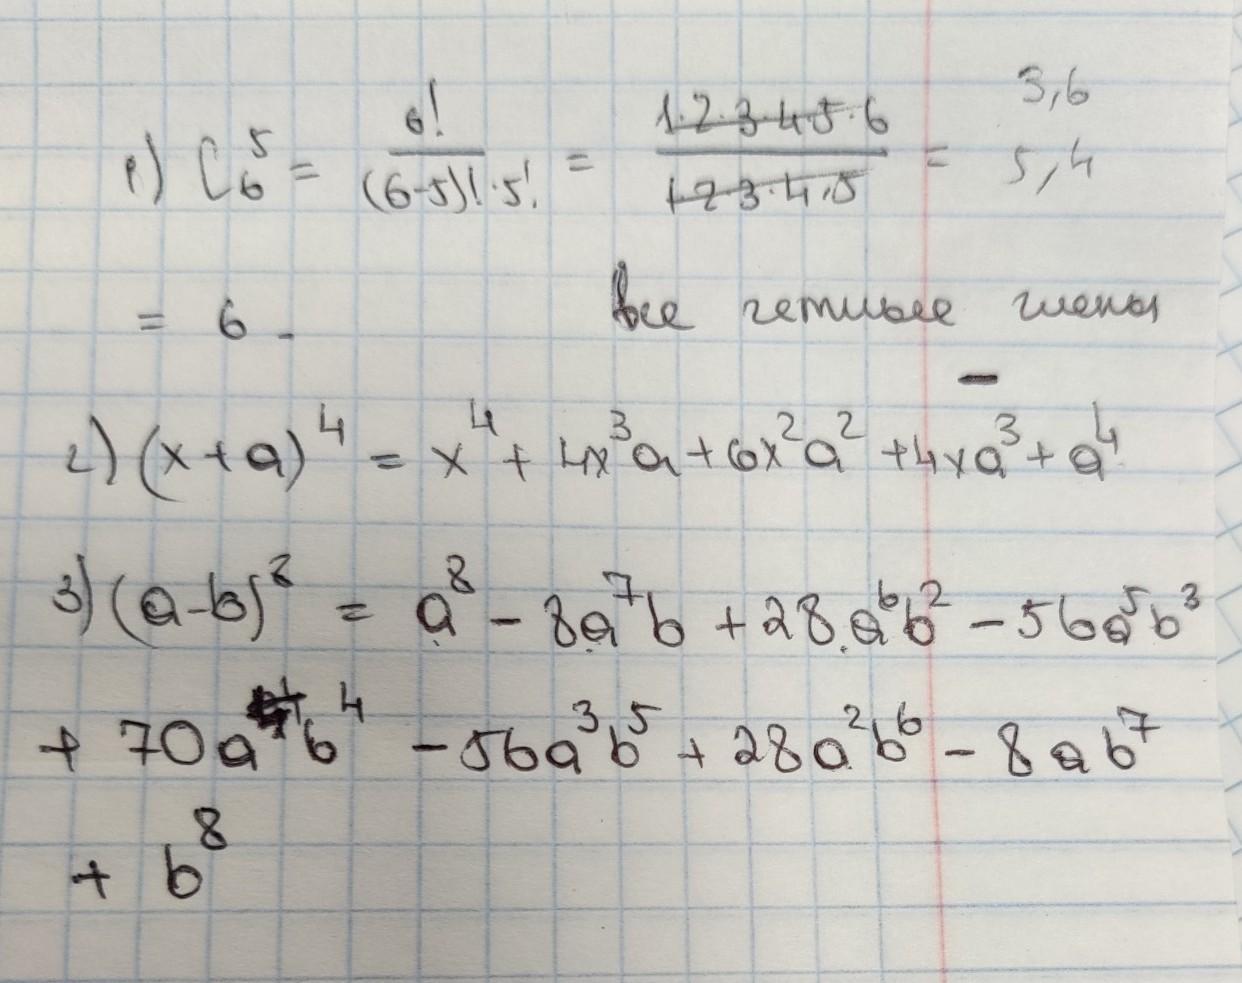 1) C₆⁵ = 6! / (6-5)! · 5! = 1·2·3·4·5·6 / 1·2·3·4·5 = 3,6
5,4
= 6 -
все четные члены
-
2) (x+a)⁴ = x⁴ + 4x³a + 6x²a² + 4xa³ + a⁴
3) (a-b)⁸ = a⁸ - 8a⁷b + 28a⁶b² - 56a⁵b³
+ 70a⁴b⁴ - 56a³b⁵ + 28a²b⁶ - 8ab⁷
+ b⁸